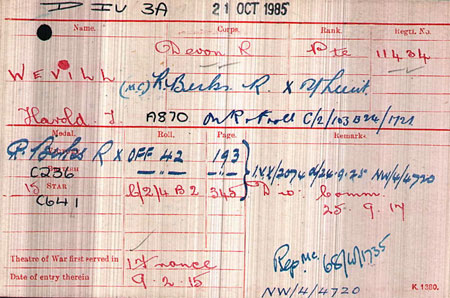 D IV 3A 21 OCT 1985
Name. Corps. Rank. Regtl. No.
Devon R Pte 11434
WEVILL (M.C.) R. Berks. R. X 2/Lieut.
Harold. J. A870 C/2/103
Medal. Roll. Page. Remarks.
R. Berks R X OFF 42 193
C236 IVX/2074 NW/4/4720
15 STAR C/2/4 B2 345 Do. Comm.
C641 25. 9. 17
Theatre of War first served in 1 France
Date of entry therein 9. 2. 15
68/W/1735
NW/4/4720
K. 1380.